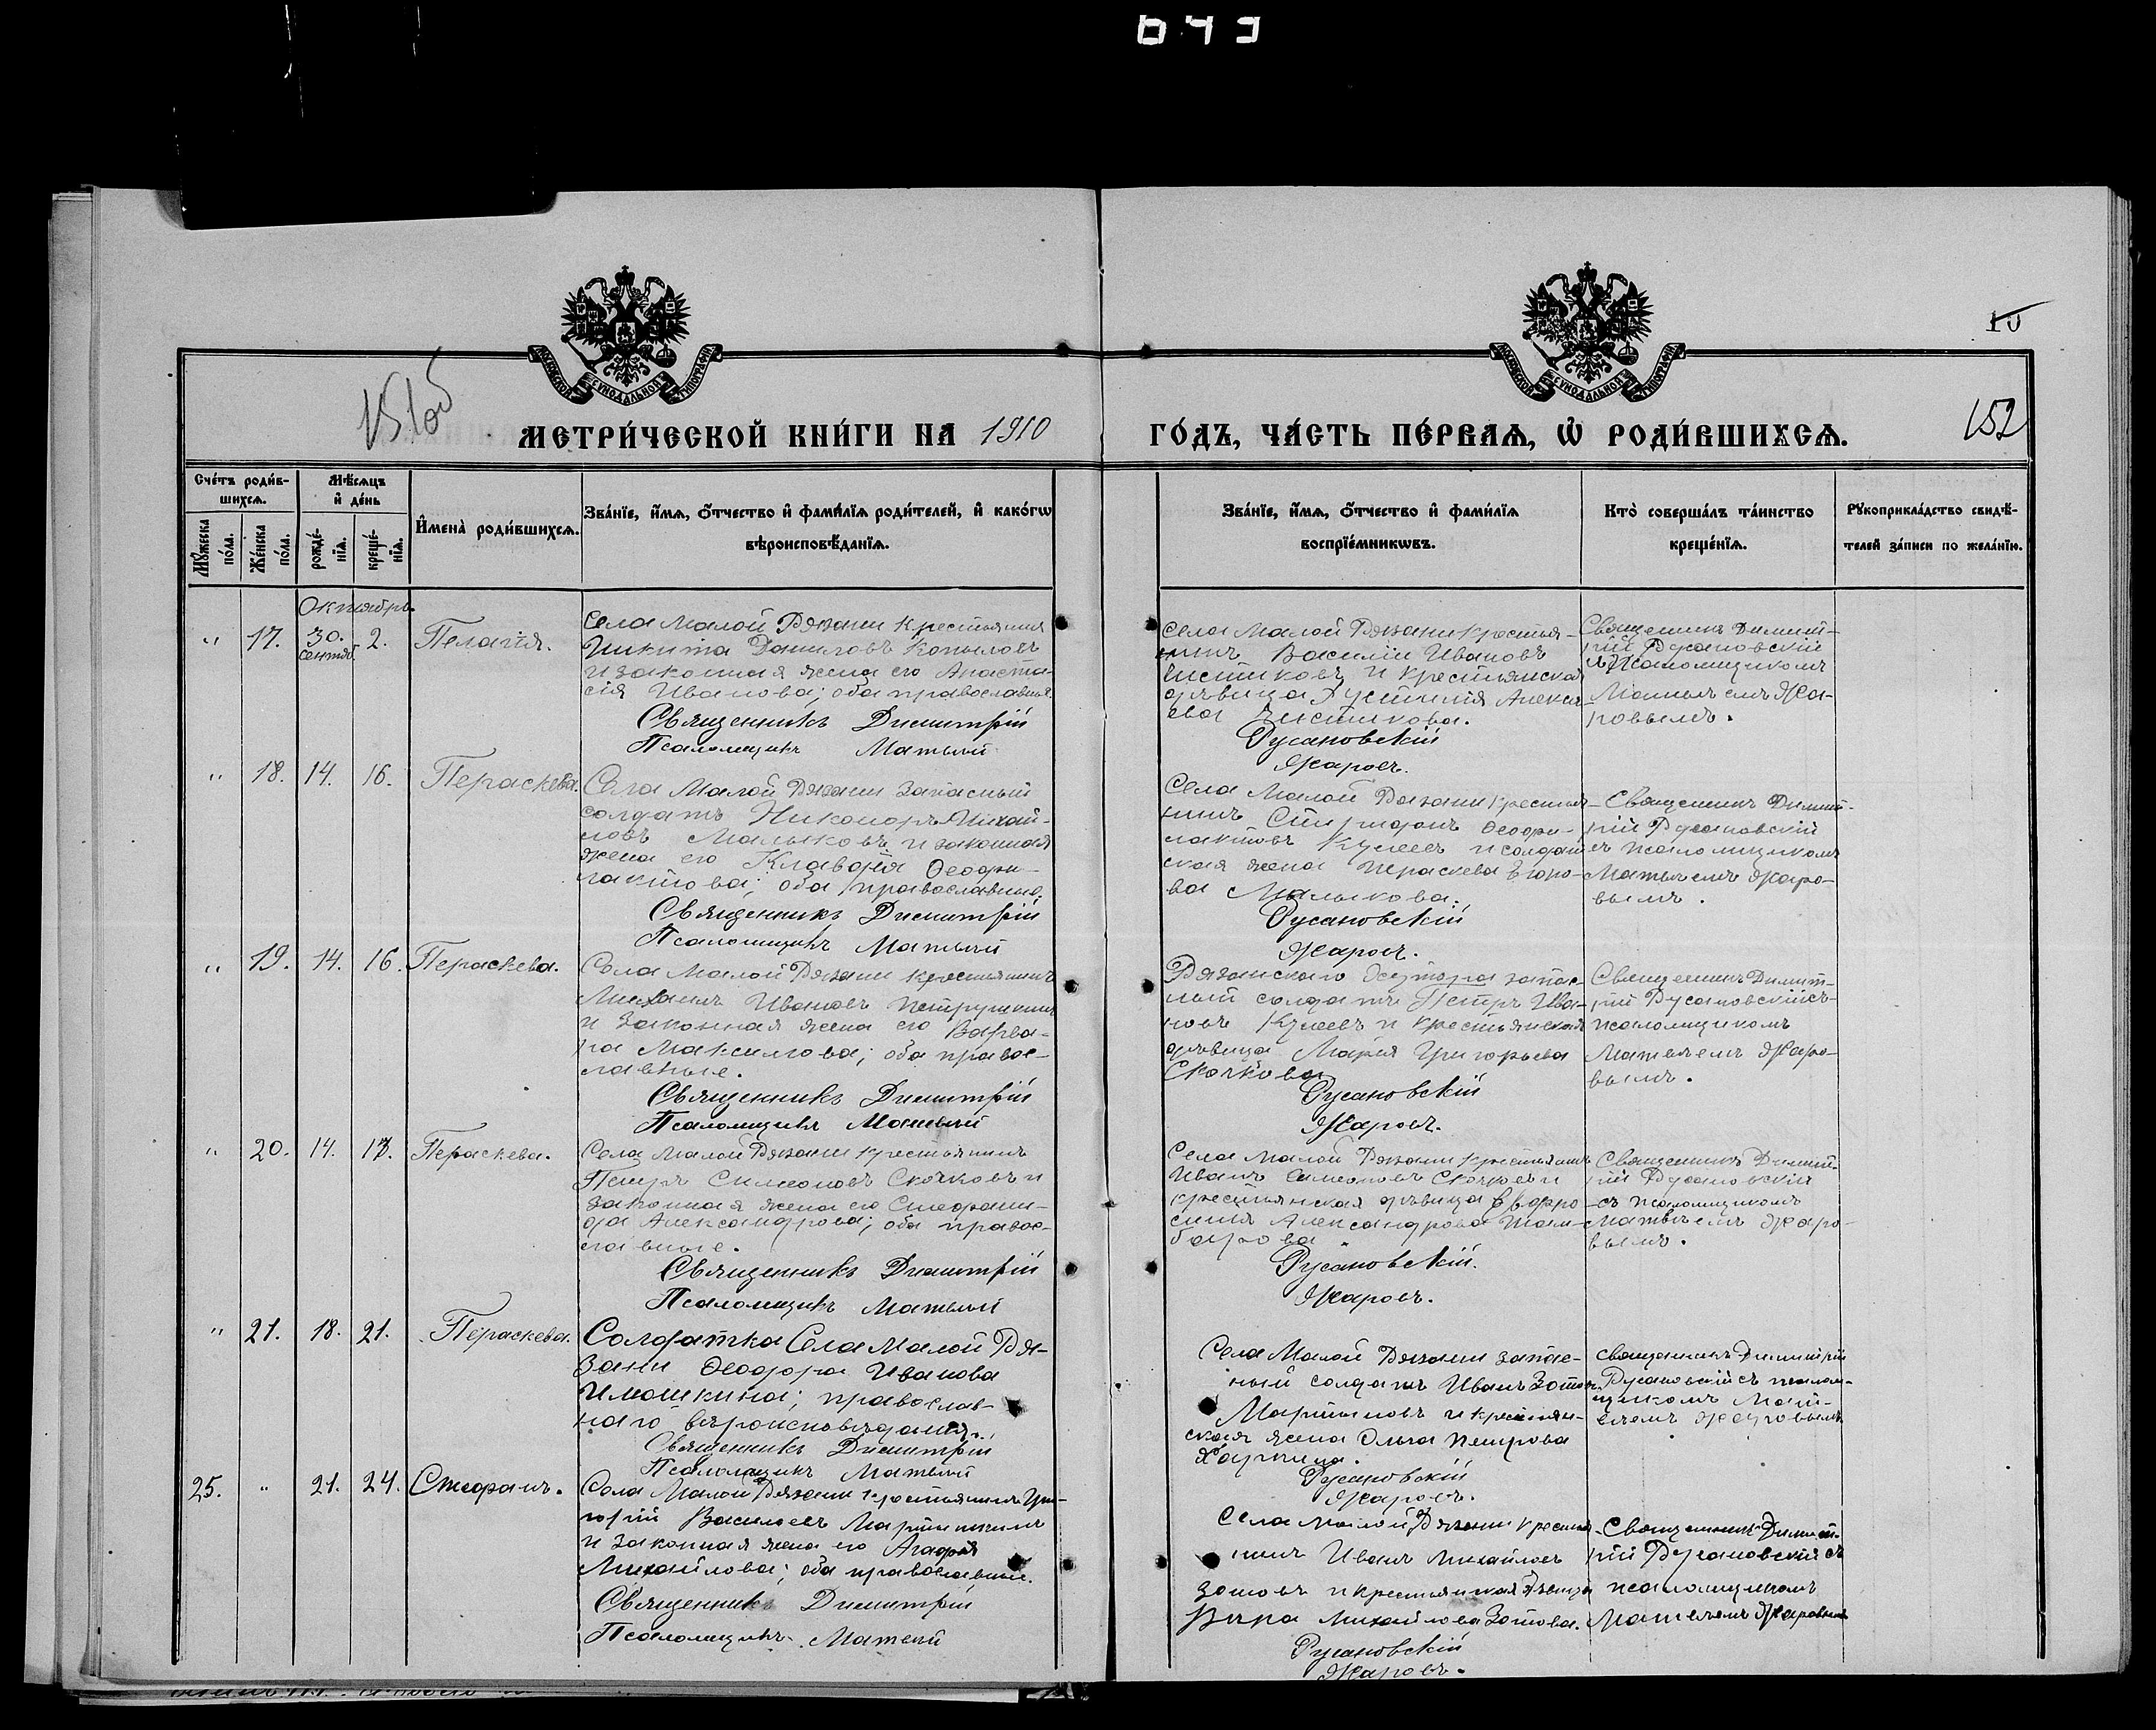 152
МЕТРИ́ЧЕСКОЙ КНИ́ГИ НА 1910 ГО́ДЪ, ЧА́СТЬ ПЕ́РВАѦ, Ѡ҆ РОДИ́ВШИХСѦ.
Сче́тъ роди́в-
шихсѧ.
Мꙋ́жеска
по́ла.
Же́нска
по́ла.
Мѣ́сѧцъ
и҆ де́нь
рожде́-
нїѧ.
креще́-
нїѧ.
И҆мена̀ роди́вшихсѧ.
Зва́нїе, и҆́мѧ, о҆́тчество и҆ фами́лїѧ роди́телей, и҆ како́гѡ
вѣроисповѣ́данїѧ.
Зва́нїе, и҆́мѧ, о҆́тчество и҆ фами́лїѧ
воспрїе́мникѡвъ.
Кто̀ соверша́лъ та́инство
креще́нїѧ.
Рꙋкоприкла́дство свидѣ́-
телей за́писи по жела́нїю.
Октябрь.
" 17. 30. сентяб. 2. Пелагія.
Села Малой Рязани крестьянинъ
Никита Даниловъ Копыловъ
и законная жена его Анаста-
сія Иванова; оба православные
Священникъ Димитрій
Псаломщикъ Матѳей
Села Малой Рязани крестья-
нинъ Василій Ивановъ
и крестьянская
дѣвица Устинія Алексѣ-
ева
Русановскій
Жаровъ.
Священникъ Димит-
рій Русановскій
съ псаломщикомъ
Матѳеемъ Жа-
ровымъ.
" 18. 14. 16. Пераскева.
Села Малой Рязани запасный
солдатъ Никаноръ Михай-
ловъ Малыковъ и законная
жена его Клавдія Ѳеофи-
лактова; оба православные.
Священникъ Димитрій
Псаломщикъ Матѳей
Села Малой Рязани крестья-
нинъ Спиридонъ Ѳеофи-
лактовъ Куліевъ и солдат-
ская жена Пераскева Егоро-
ва Малыкова.
Русановскій
Жаровъ.
Священникъ Димит-
рій Русановскій
съ псаломщикомъ
Матѳеемъ Жаро-
вымъ.
" 19. 14. 16. Пераскева.
Села Малой Рязани крестьянинъ
Михаилъ Ивановъ Петрушкинъ
и законная жена его Варва-
ра Максимова; оба правос-
лавные.
Священникъ Димитрій
Псаломщикъ Матѳей
Рязанскаго хутора запас-
ный солдатъ Петръ Ива-
новъ Куліевъ и крестьянская
дѣвица Марія Григорьева
Скачкова
Русановскій
Жаровъ.
Священникъ Димит-
рій Русановскій съ
псаломщикомъ
Матѳеемъ Жаро-
вымъ.
" 20. 14. 17. Пераскева.
Села Малой Рязани крестьянинъ
Петръ Симеоновъ Скачковъ и
законная жена его Стефани-
да Александрова; оба правос-
лавные.
Священникъ Димитрій
Псаломщикъ Матѳей
Села Малой Рязани крестьянинъ
Иванъ Симеоновъ Скачковъ и
крестьянская дѣвица Евфро-
синія Александрова Там-
барова
Русановскій.
Жаровъ.
Священникъ Димит-
рій Русановскій
съ псаломщикомъ
Матѳеемъ Жаро-
вымъ.
" 21. 18. 21. Пераскева.
Солдатка Села Малой Ря-
зани Ѳеодора Иванова
Имошкина; православ-
наго вѣроисповѣданія.
Священникъ Димитрій
Псаломщикъ Матѳей
Села Малой Рязани запас-
ный солдатъ Иванъ Зотовъ
Мартыновъ и крестьян-
ская жена Ольга Петрова
Русановскій
Жаровъ.
Священникъ Димитрій
Русановскій съ псалом-
щикомъ Матѳ-
еемъ Жаровымъ
25. " 21. 24. Стефанъ.
Села Малой Рязани крестьянинъ Гри-
горій Василіевъ Мартышкинъ
и законная жена его Агафія
Михайлова; оба православные.
Священникъ Димитрій
Псаломщикъ Матѳей
Села Малой Рязани крестья-
нинъ Иванъ Михайловъ
Зотовъ и крестьянская дѣвица
Вѣра Михайлова Зотова.
Русановскій
Жаровъ.
Священникъ Димит-
рій Русановскій съ
псаломщикомъ
Матѳеемъ Жаровымъ